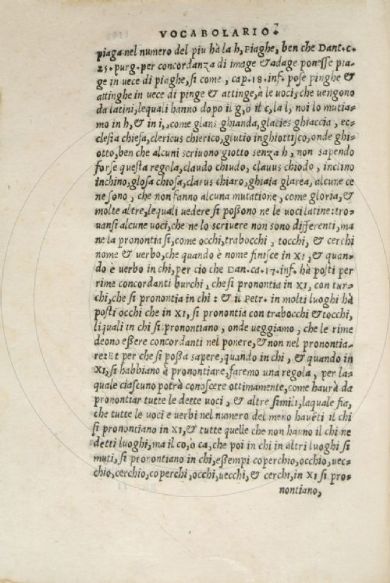 VOCABOLARIO
piaga nel numero del piu hà la h, Piaghe, ben che Dant.c.
25.purg.per concordanza di image & adage ponesse pia-
ge in uece di piaghe, si come, cap.18.inf. pose pinghe &
attinghe in uece di pinge & attinge, à le uoci, che uengono
da latini, lequali hanno dopo il g, ò il c, la l, noi lo mutia-
mo in h, & in i, come glans ghianda, glacies ghiaccia, ec-
clesia chiesa, clericus chierico, glutio inghiottisco, onde ghi-
otto, ben che alcuni scriuono giotto senza h, non sapendo
forse questa regola, claudo chiudo, clauus chiodo, inclino
inchino, glosa chiosa, clarus chiaro, ghiaia glarea, alcune ce
ne sono, che non fanno alcuna mutatione, come gloria, &
molte altre, lequali uedere si possono ne le uoci latine: tro-
uansi alcune uoci, che ne lo scriuere non sono differenti, ma
ne la prononti a si, come occhi, trabocchi, tocchi, & cerchi
nome & uerbo, che quando è nome finisce in XI, & quan-
do è uerbo in chi, per cio che Dan. ca.17.inf. hà posti per
rime concordanti burchi, che si prononti a in XI, con tur-
chi, che si prononti a in chi: & il Petr. in molti luoghi hà
posti occhi che in XI, si prononti a con trabocchi & tocchi,
li quali in chi si prononti ano, onde ueggiamo, che le rime
deono essere concordanti nel ponere, & non nel prononti a-
re: & per che si possa sapere, quando in chi, & quando in
XI, si habbiano à prononti are, faremo una regola, per la-
quale ciascuno potrà conoscere ottimamente, come haurà da
prononti ar tutte le dette uoci, & altre simili, laquale fia,
che tutte le uoci e uerbi nel numero del meno haueti il chi
si prononti ano in XI, & tutte quelle che non hanno il chi ne
detti luoghi, ma il co, ò ca, che poi in chi in altri luoghi si
muti, si prononti ano in chi, essempi coperchio, occhio, uec-
chio, cerchio, coperchi, occhi, uecchi, & cerchi, in XI si pro-
nontiano,